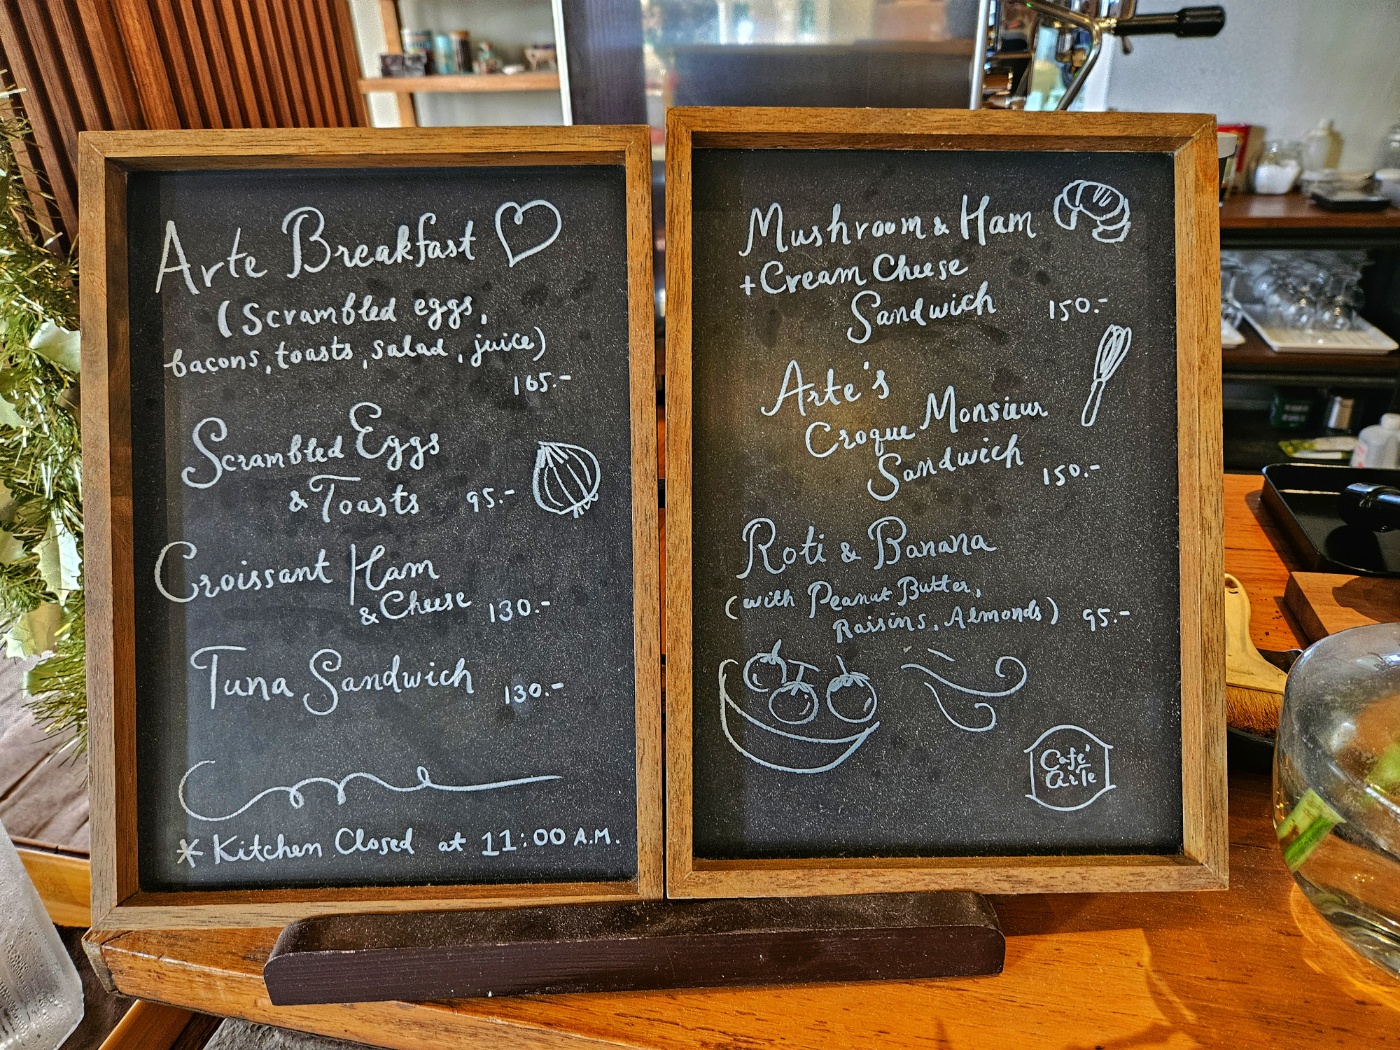 Arte Breakfast
(Scrambled eggs,
bacons, toasts, salad, juice)
165.-
Scrambled Eggs
& Toasts 95.-
Croissant Ham
& Cheese 130.-
Tuna Sandwich 130.-
* Kitchen Closed at 11:00 A.M.
Mushroom & Ham
+ Cream Cheese
Sandwich 150.-
Arte's
Croque Monsieur
Sandwich 150.-
Roti & Banana
(with Peanut Butter,
Raisins, Almonds) 95.-
Café
arte